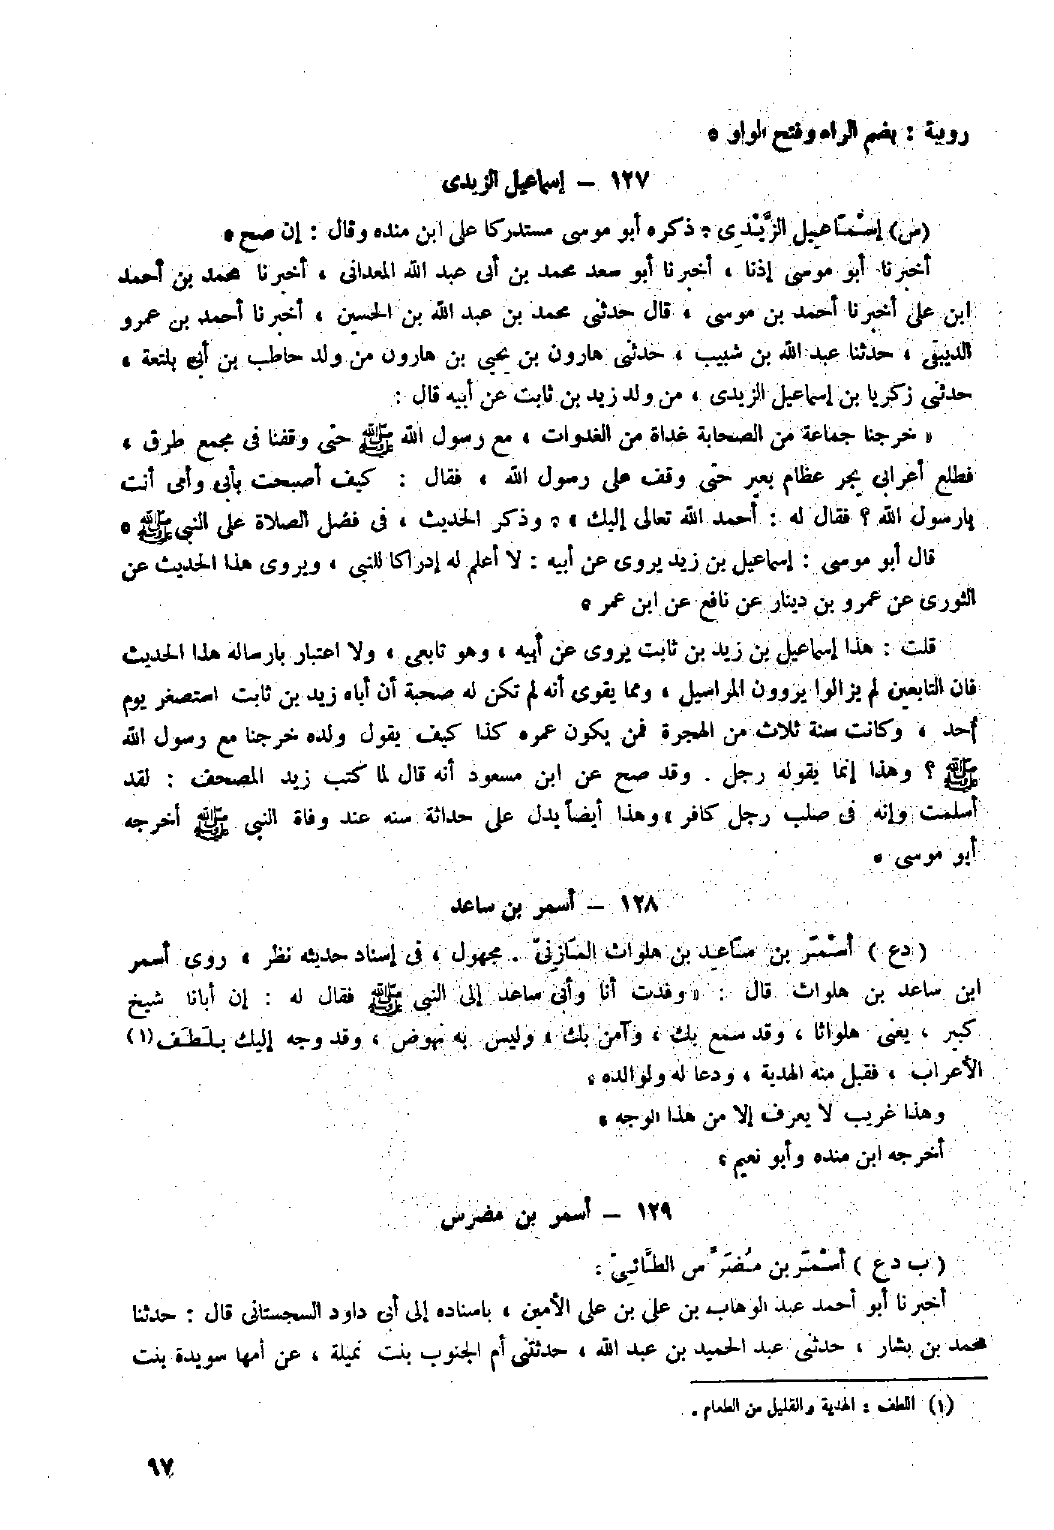 روية : بضم الراء وفتح الواو ٥
١٢٧ – إسماعيل الزيدى
(س) إِسْمَاعِيل الزَّيْدِى ؛ ذكره أبو موسى مستدركا على ابن منده وقال : إن صح ٥
أخبرنا أبو موسى إذنا ، أخبرنا أبو سعد محمد بن أبى عبد الله المعدانى ، أخبرنا محمد بن أحمد
ابن على أخبرنا أحمد بن موسى ، قال حدثنى محمد بن عبد الله بن الحسين ، أخبرنا أحمد بن عمرو
الدبيقى ، حدثنا عبد الله بن شبيب ، حدثنى هارون بن يحيى بن هارون من ولد حاطب بن أبى بلتعة ،
حدثنى زكريا بن إسماعيل الزيدى ، من ولد زيد بن ثابت عن أبيه قال :
« خرجنا جماعة من الصحابة غداة من الغدوات ، مع رسول الله ﷺ حتى وقفنا فى مجمع طرق ،
فطلع أعرابى يجر عظام بعير حتى وقف على رسول الله ، فقال : كيف أصبحت بأبى وأمى أنت
يارسول الله ؟ فقال له : أحمد الله تعالى إليك » ، وذكر الحديث ، فى فضل الصلاة على النبى ﷺ ٥
قال أبو موسى : إسماعيل بن زيد يروى عن أبيه : لا أعلم له إدراكا للنبى ، ويروى هذا الحديث عن
الثورى عن عمرو بن دينار عن نافع عن ابن عمر ٥
قلت : هذا إسماعيل بن زيد بن ثابت يروى عن أبيه ، وهو تابعى ، ولا اعتبار بارساله هذا الحديث
فان التابعين لم يزالوا يروون المراسيل ، ومما يقوى أنه لم تكن له صحبة أن أباه زيد بن ثابت استصغر يوم
أحد ، وكانت سنة ثلاث من الهجرة فمن يكون عمره كذا كيف يقول ولده خرجنا مع رسول الله
ﷺ ؟ وهذا إنما يقوله رجل . وقد صح عن ابن مسعود أنه قال لما كتب زيد المصحف : لقد
أسلمت وإنه فى صلب رجل كافر » وهذا أيضاً يدل على حداثة سنه عند وفاة النبى ﷺ أخرجه
أبو موسى ٥
١٢٨ – أسمر بن ساعد
( دع ) أَسْمَر بن سَاعِد بن هلواث المَازِنِىّ . مجهول ، فى إسناد حديثه نظر ، روى أسمر
ابن ساعد بن هلواث قال : « وفدت أنا وأبى ساعد إلى النبى ﷺ فقال له : إن أبانا شيخ
كبير ، يعنى هلواثا ، وقد سمع بك ، وآمن بك ، وليس به نهوض ، وقد وجه إليك بلَطَف (١)
الأعراب ، فقبل منه الهدية ، ودعا له ولوالده ،
وهذا غريب لا يعرف إلا من هذا الوجه ٥
أخرجه ابن منده وأبو نعيم ،
١٢٩ – أسمر بن مضرس
( ب دع ) أَسْمَر بن مُضَرِّس الطَّائِىّ :
أخبرنا أبو أحمد عبد الوهاب بن على بن على الأمين ، باسناده إلى أبى داود السجستانى قال : حدثنا
محمد بن بشار ، حدثنى عبد الحميد بن عبد الله ، حدثتنى أم الجنوب بنت نميلة ، عن أمها سويدة بنت
(١) اللطف : الهدية والقليل من الطعام .
٩٧